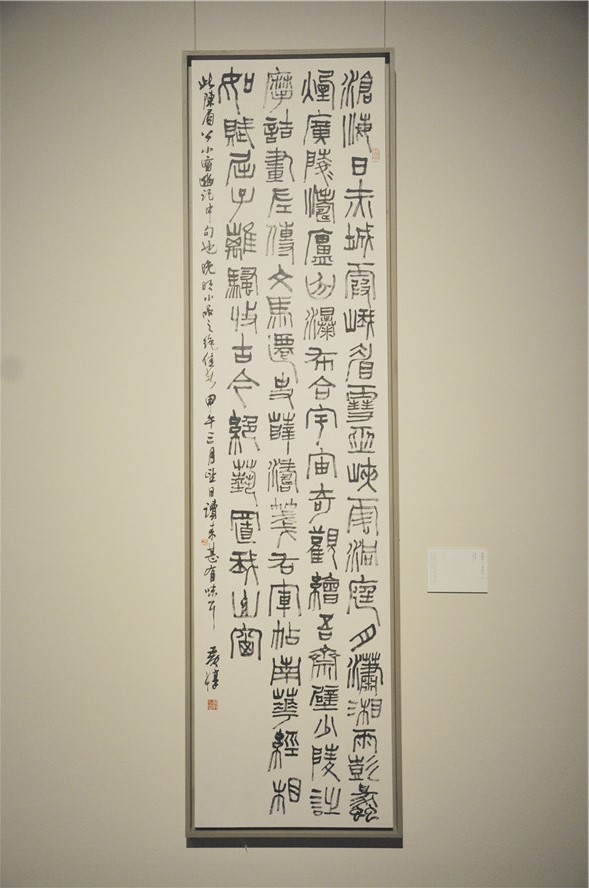 滄海日赤城霞峨眉雪巫峽雲洞庭月瀟湘雨彭蠡
煙廣陵濤廬山瀑布合宇宙奇觀繪吾齋壁少陵詩
摩詰畫左傳文馬遷史薛濤箋右軍帖南華經相
如賦屈子離騷收古今絕藝置我山窗
此陳眉公小窗幽記中句也晚明小品之絕佳者甲午三月望日讀來甚有味耳